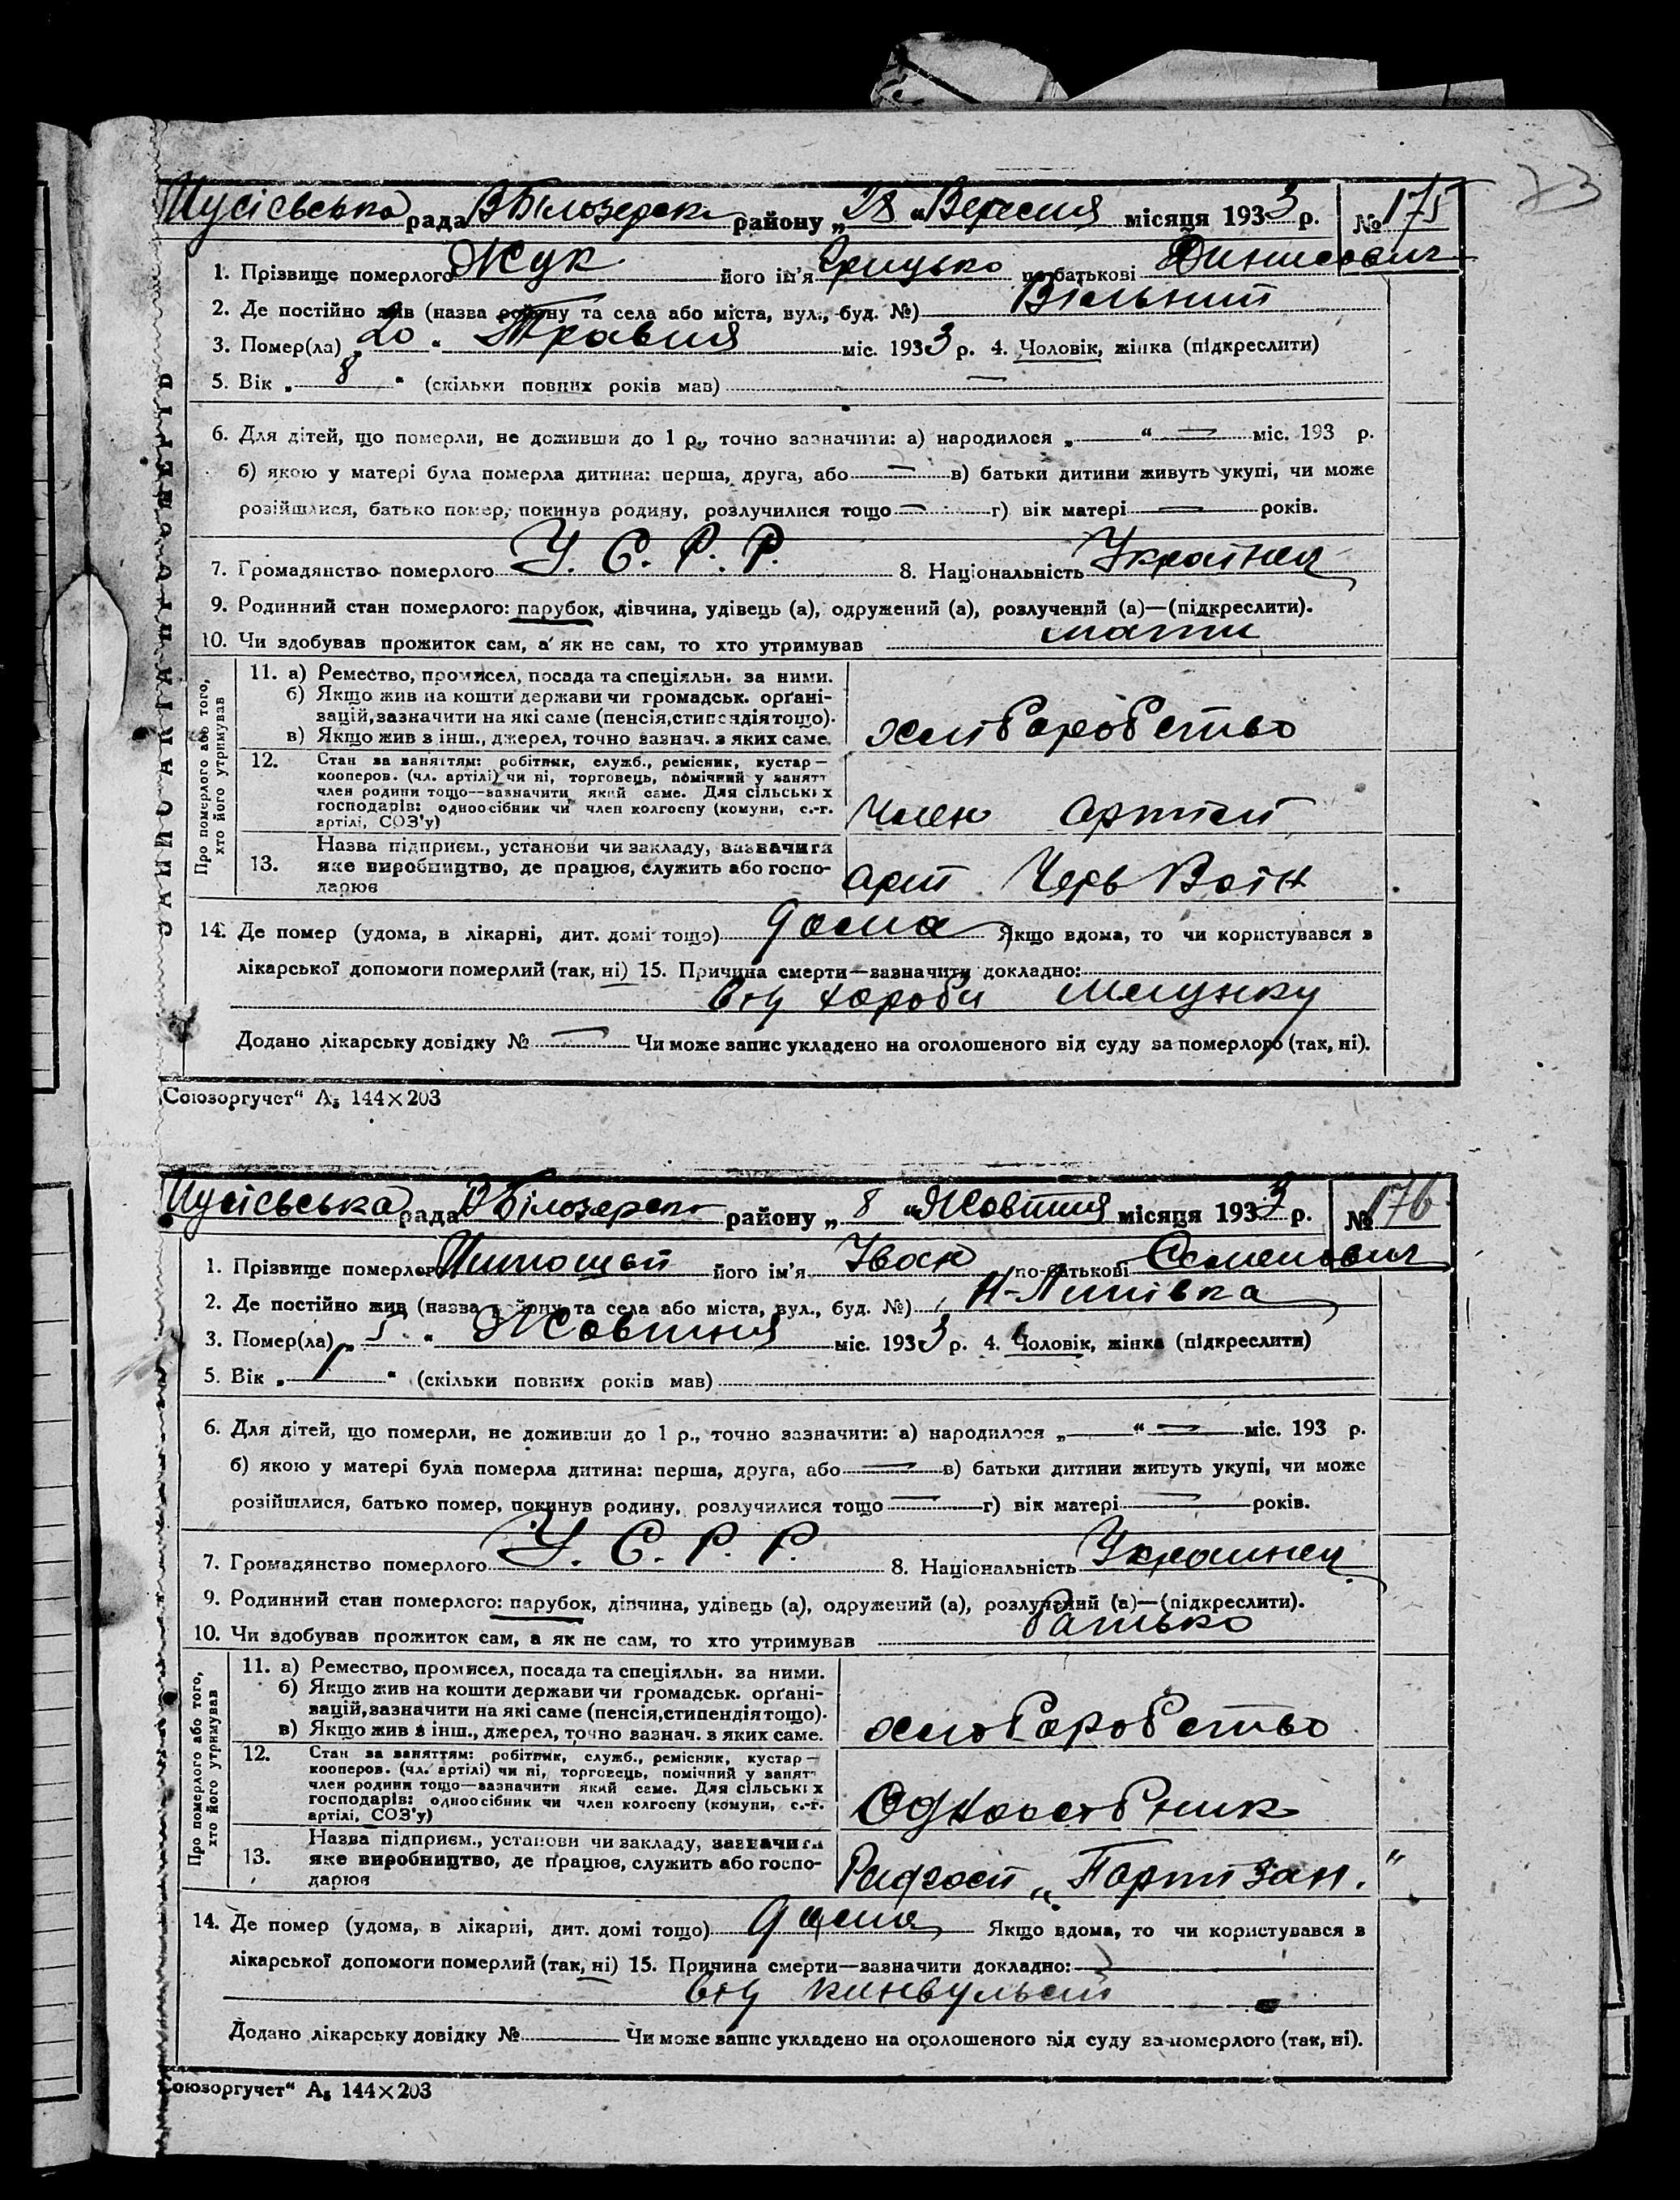 73
Мусієвська рада В Білозерськ району „28“ Вересня місяця 1933 р. № 175
1. Прізвище померлого Жук його ім'я Грицько по-батькові Динисович
2. Де постійно жив (назва району та села або міста, вул., буд. №) Вільний
3. Помер(ла) „20“ Травня міс. 1933 р. 4. Чоловік, жінка (підкреслити)
5. Вік „8“ (скільки повних років мав) —
6. Для дітей, що померли, не доживши до 1 р., точно зазначити: а) народилося „—“ — міс. 193 р.
б) якою у матері була померла дитина: перша, друга, або — в) батьки дитини живуть укупі, чи може
розійшлися, батько помер, покинув родину, розлучилися тощо — г) вік матері — років.
7. Громадянство померлого У. С. Р. Р. 8. Національність Українец
9. Родинний стан померлого: парубок, дівчина, удівець (а), одружений (а), розлучений (а)—(підкреслити).
10. Чи здобував прожиток сам, а як не сам, то хто утримував мати
ЗАПИС АКТА ПРО СМЕРТЬ
Про померлого або того, хто його утримував
11. а) Ремество, промисел, посада та спеціяльн. за ними.
б) Якщо жив на кошти держави чи громадськ. орґані-
зацій, зазначити на які саме (пенсія, стипендія тощо).
в) Якщо жив з інш., джерел, точно зазнач. з яких саме.
хліборобство
12. Стан за заняттям: робітник, служб., ремісник, кустар—
кооперов. (чл. артілі) чи ні, торговець, помічний у занятт
член родини тощо—зазначити який саме. Для сільських
господарів: одноосібник чи член колгоспу (комуни, с.-г.
артілі, СОЗ'у)
Член артілі
13. Назва підприєм., установи чи закладу, зазначити
яке виробництво, де працює, служить або госпо-
дарює
арт Черв Воін
14. Де помер (удома, в лікарні, дит. домі тощо) дома Якщо вдома, то чи користувався в
лікарської допомоги померлий (так, ні) 15. Причина смерти—зазначити докладно:
від хороби шлунку
Додано лікарську довідку № — Чи може запис укладено на оголошеного від суду за померлого (так, ні).
Союзоргучет“ А₅ 144×203
Мусієвська рада В Білозерськ району „8“ Жовтня місяця 1933 р. № 176
1. Прізвище померлого його ім'я Іван по-батькові Семенович
2. Де постійно жив (назва району та села або міста, вул., буд. №) Н-Липівка
3. Помер(ла) „5“ Жовтня міс. 1933 р. 4. Чоловік, жінка (підкреслити)
5. Вік „1“ (скільки повних років мав)
6. Для дітей, що померли, не доживши до 1 р., точно зазначити: а) народилося „—“ — міс. 193 р.
б) якою у матері була померла дитина: перша, друга, або — в) батьки дитини живуть укупі, чи може
розійшлися, батько помер, покинув родину, розлучилися тощо — г) вік матері — років.
7. Громадянство померлого У. С. Р. Р. 8. Національність Украинец
9. Родинний стан померлого: парубок, дівчина, удівець (а), одружений (а), розлучений (а)—(підкреслити).
10. Чи здобував прожиток сам, а як не сам, то хто утримував батько
Про померлого або того, хто його утримував
11. а) Ремество, промисел, посада та спеціяльн. за ними.
б) Якщо жив на кошти держави чи громадськ. орґані-
зацій, зазначити на які саме (пенсія, стипендія тощо).
в) Якщо жив з інш., джерел, точно зазнач. з яких саме.
хліборобство
12. Стан за заняттям: робітник, служб., ремісник, кустар—
кооперов. (чл. артілі) чи ні, торговець, помічний у занятт
член родини тощо—зазначити який саме. Для сільських
господарів: одноосібник чи член колгоспу (комуни, с.-г.
артілі, СОЗ'у)
Одноосібник
13. Назва підприєм., установи чи закладу, зазначити
яке виробництво, де працює, служить або госпо-
дарює
Радгосп „Партізан.“
14. Де помер (удома, в лікарні, дит. домі тощо) дома Якщо вдома, то чи користувався в
лікарської допомоги померлий (так, ні) 15. Причина смерти—зазначити докладно:
від кинвульсій
Додано лікарську довідку № Чи може запис укладено на оголошеного від суду за померлого (так, ні).
Союзоргучет“ А₅ 144×203